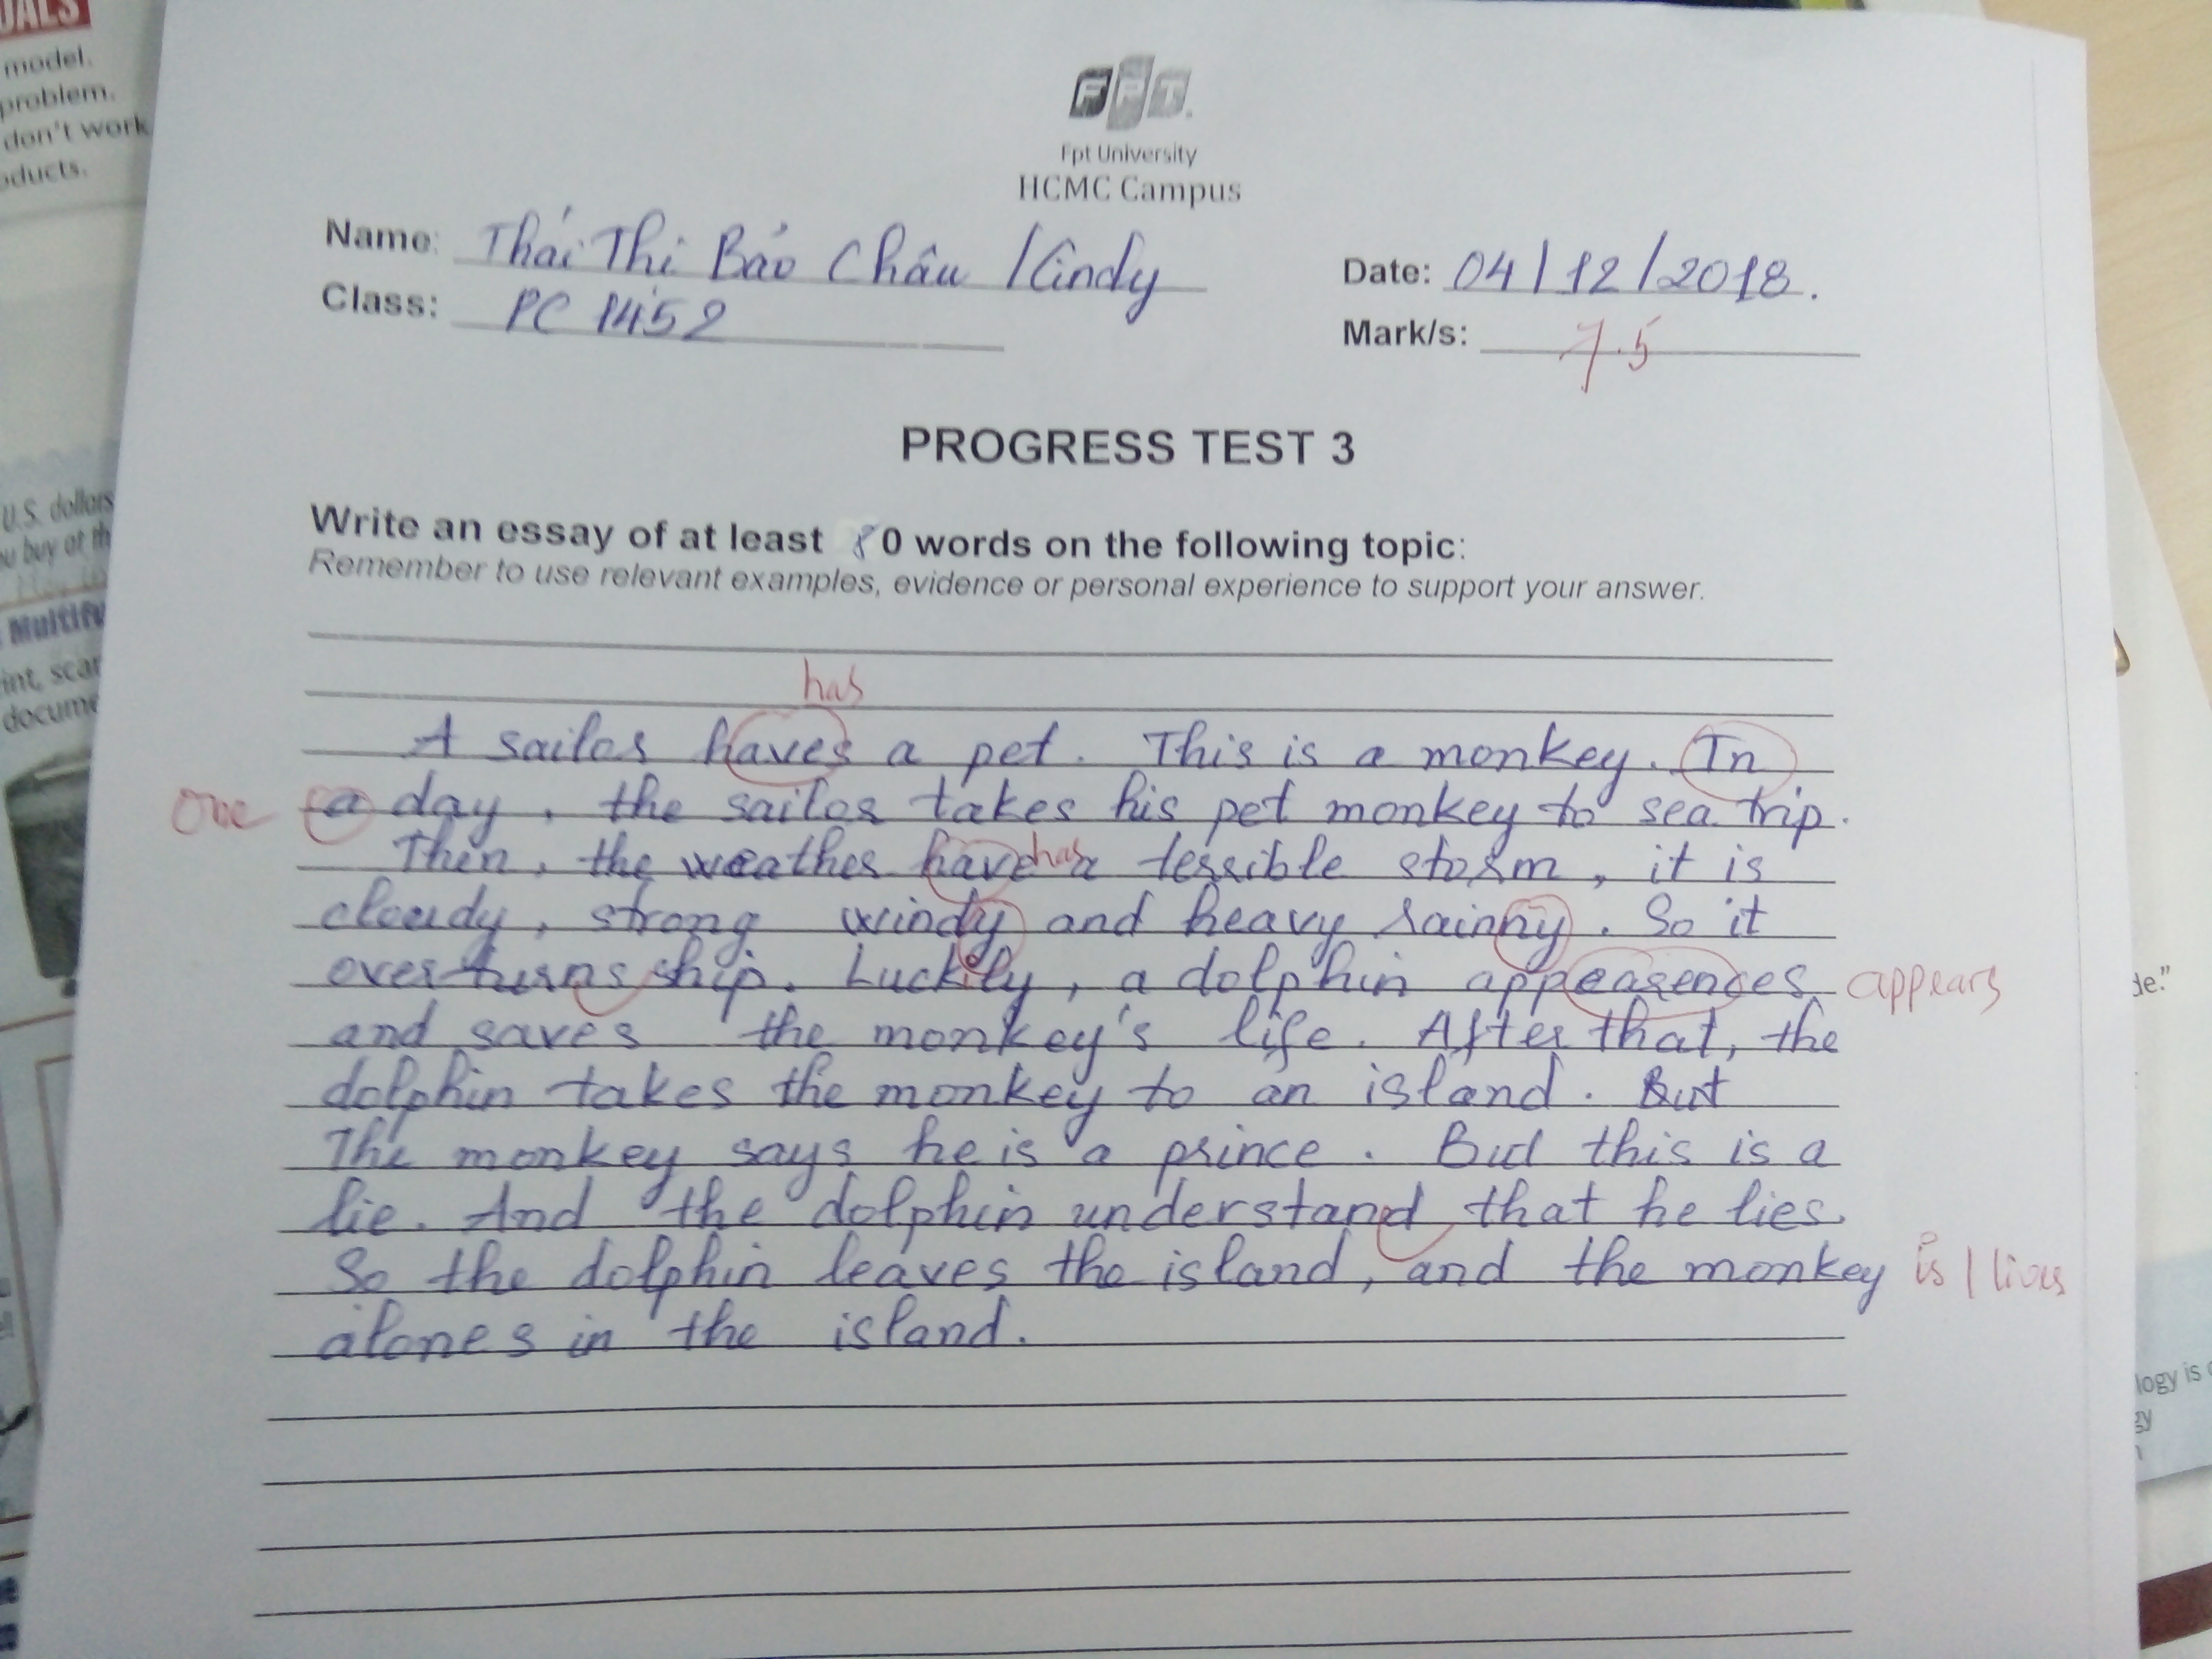 OALS
model.
problem.
don't work
oducts.
U.S. dollars
Multifu
int, scan
docume
FPT
Fpt University
HCMC Campus
Name: Thái Thị Bảo Châu / Cindy
Date: 04/12/2018.
Class: PC 1452
Mark/s: 7.5
PROGRESS TEST 3
Write an essay of at least 80 words on the following topic:
Remember to use relevant examples, evidence or personal experience to support your answer.
has
A sailor haves a pet. This is a monkey. In
one a day, the sailor takes his pet monkey to sea trip.
Then, the weather have has a terrible storm, it is
cloudy, strong windy and heavy rainny. So it
overturns ship. Luckily, a dolphin appearences appears
and saves the monkey's life. After that, the
dolphin takes the monkey to an island. But
The monkey says he is a prince. But this is a
lie. And the dolphin understand that he lies.
So the dolphin leaves the island, and the monkey is / lives
alones in the island.
de."
logy is
gy